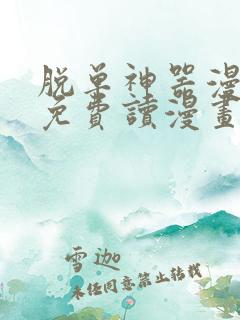 脱单神器漫
免費讀漫畫
雪迦
未经同意禁止转载